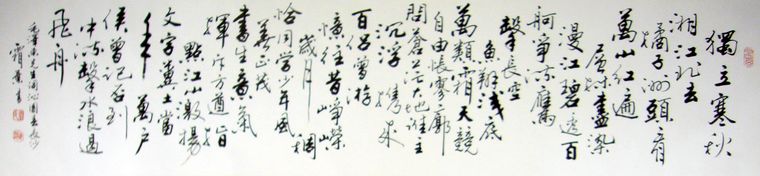 獨立寒秋
湘江北去
橘子洲頭看
萬山紅遍
層林盡染
漫江碧透百
舸爭流鷹
擊長空
魚翔淺底
萬類霜天競
自由悵寥廓
問蒼茫大地誰主
沉浮攜來
百侶曾游
憶往昔崢嶸
歲月稠
恰同學少年風
華正茂
書生意氣
揮斥方遒指
點江山激揚
文字糞土當
年萬戶
侯曾記否到
中流擊水浪遏
飛舟
毛澤東先生詞沁園春長沙